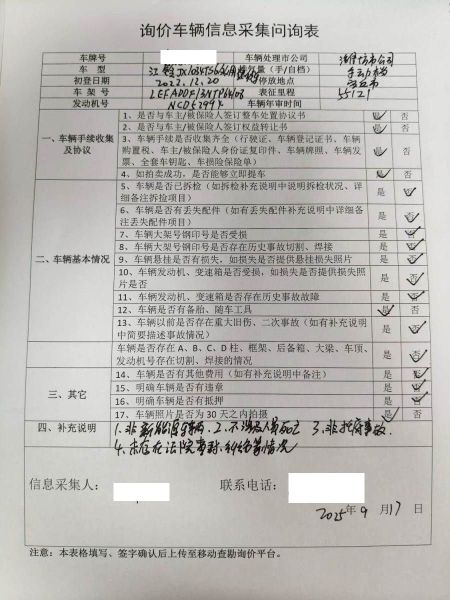 询价车辆信息采集问询表
车牌号 车辆处理市公司
车 型 排气量（手/自档） 手动档
初登日期 2022.12.20 停放地点
车 架 号 表征里程 55121
发动机号 车辆年审时间
一、车辆手续收集及协议
1、是否与车主/被保险人签订整车处置协议书 是 否
2、是否与车主/被保险人签订权益转让书 是 否
3、车辆手续是否收集齐全（行驶证、车辆登记证书、车辆
购置税、车主/被保险人身份证复印件、车辆牌照、车辆发
票、全套车钥匙、车损险保险单） 是 否
4、如拍卖成功，是否能够立即提车 是 否
二、车辆基本情况
5、车辆是否已拆检（如拆检补充说明中说明拆检状况、详
细备注拆检项目） 是 否
6、车辆是否有丢失配件（如有丢失配件补充说明中详细备
注丢失配件项目） 是 否
7、车辆大架号钢印号是否受损 是 否
8、车辆大架号钢印号是否存在历史事故切割、焊接 是 否
9、车辆悬挂是否有损失，如损失是否提供悬挂损失照片 是 否
10、车辆发动机、变速箱是否受损，如损失是否提供损失照
片是否 是 否
11、车辆发动机、变速箱是否存在历史事故故障 是 否
12、车辆是否有备胎、随车工具 是 否
13、车辆以前是否存在重大旧伤、二次事故（如有补充说明
中简要描述事故情况） 是 否
车辆是否存在 A、B、C、D 柱、框架、后备箱、大梁、车顶、
发动机号存在切割、焊接的情况 是 否
三、其它
14、车辆是否有其他费用（如有补充说明中备注） 是 否
15、明确车辆是否有违章 是 否
16、明确车辆是否有抵押 是 否
17、车辆照片是否为 30 天之内拍摄 是 否
四、补充说明 1、非新能源车辆 2、不涉及人员死亡 3、非拒赔事故
4、未存在法院查封、纠纷等情况
信息采集人： 联系电话：
2025年 9 月 17 日
注意：本表格填写、签字确认后上传至移动查勘询价平台。